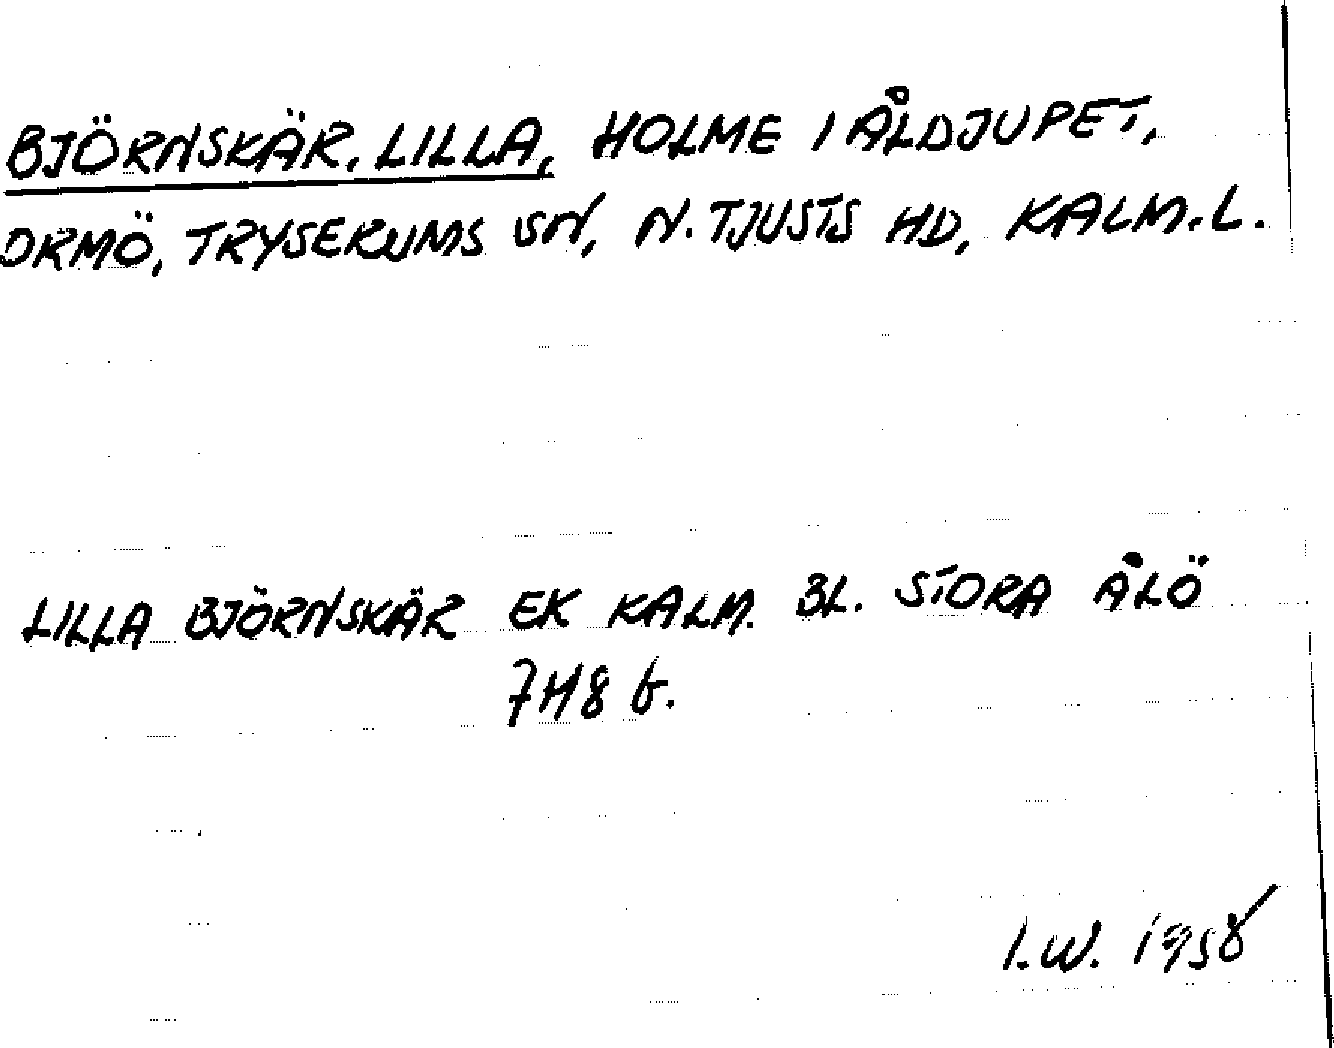 BJÖRNSKÄR, LILLA, HOLME I ÅLDJUPET,
ORMÖ, TRYSERUMS SN, N. TJUSTS HD, KALM. L.
LILLA BJÖRNSKÄR EK KALM. BL. STORA ÅLÖ
7H8 b.
I.W. 1958